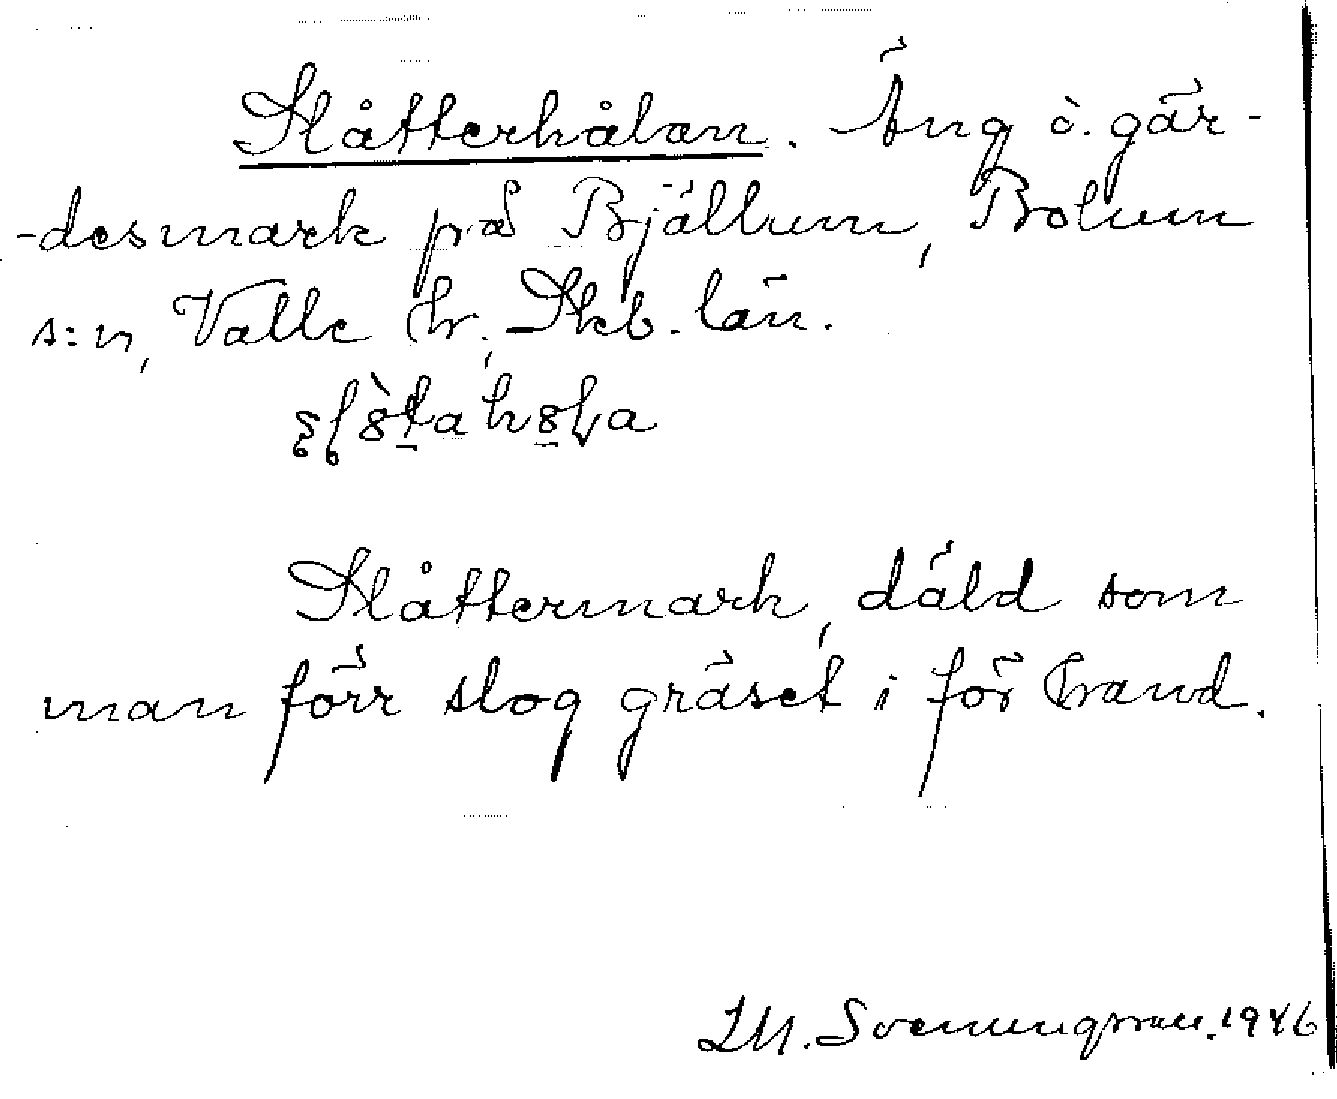 Slåtterhålan. Äng o. gär-
-desmark på Bjällum, Bolum
s:n, Valle hr, Skb. län.
Slåttermark, däld som
man förr slog gräset i för hand.
Sveningsson. 1946